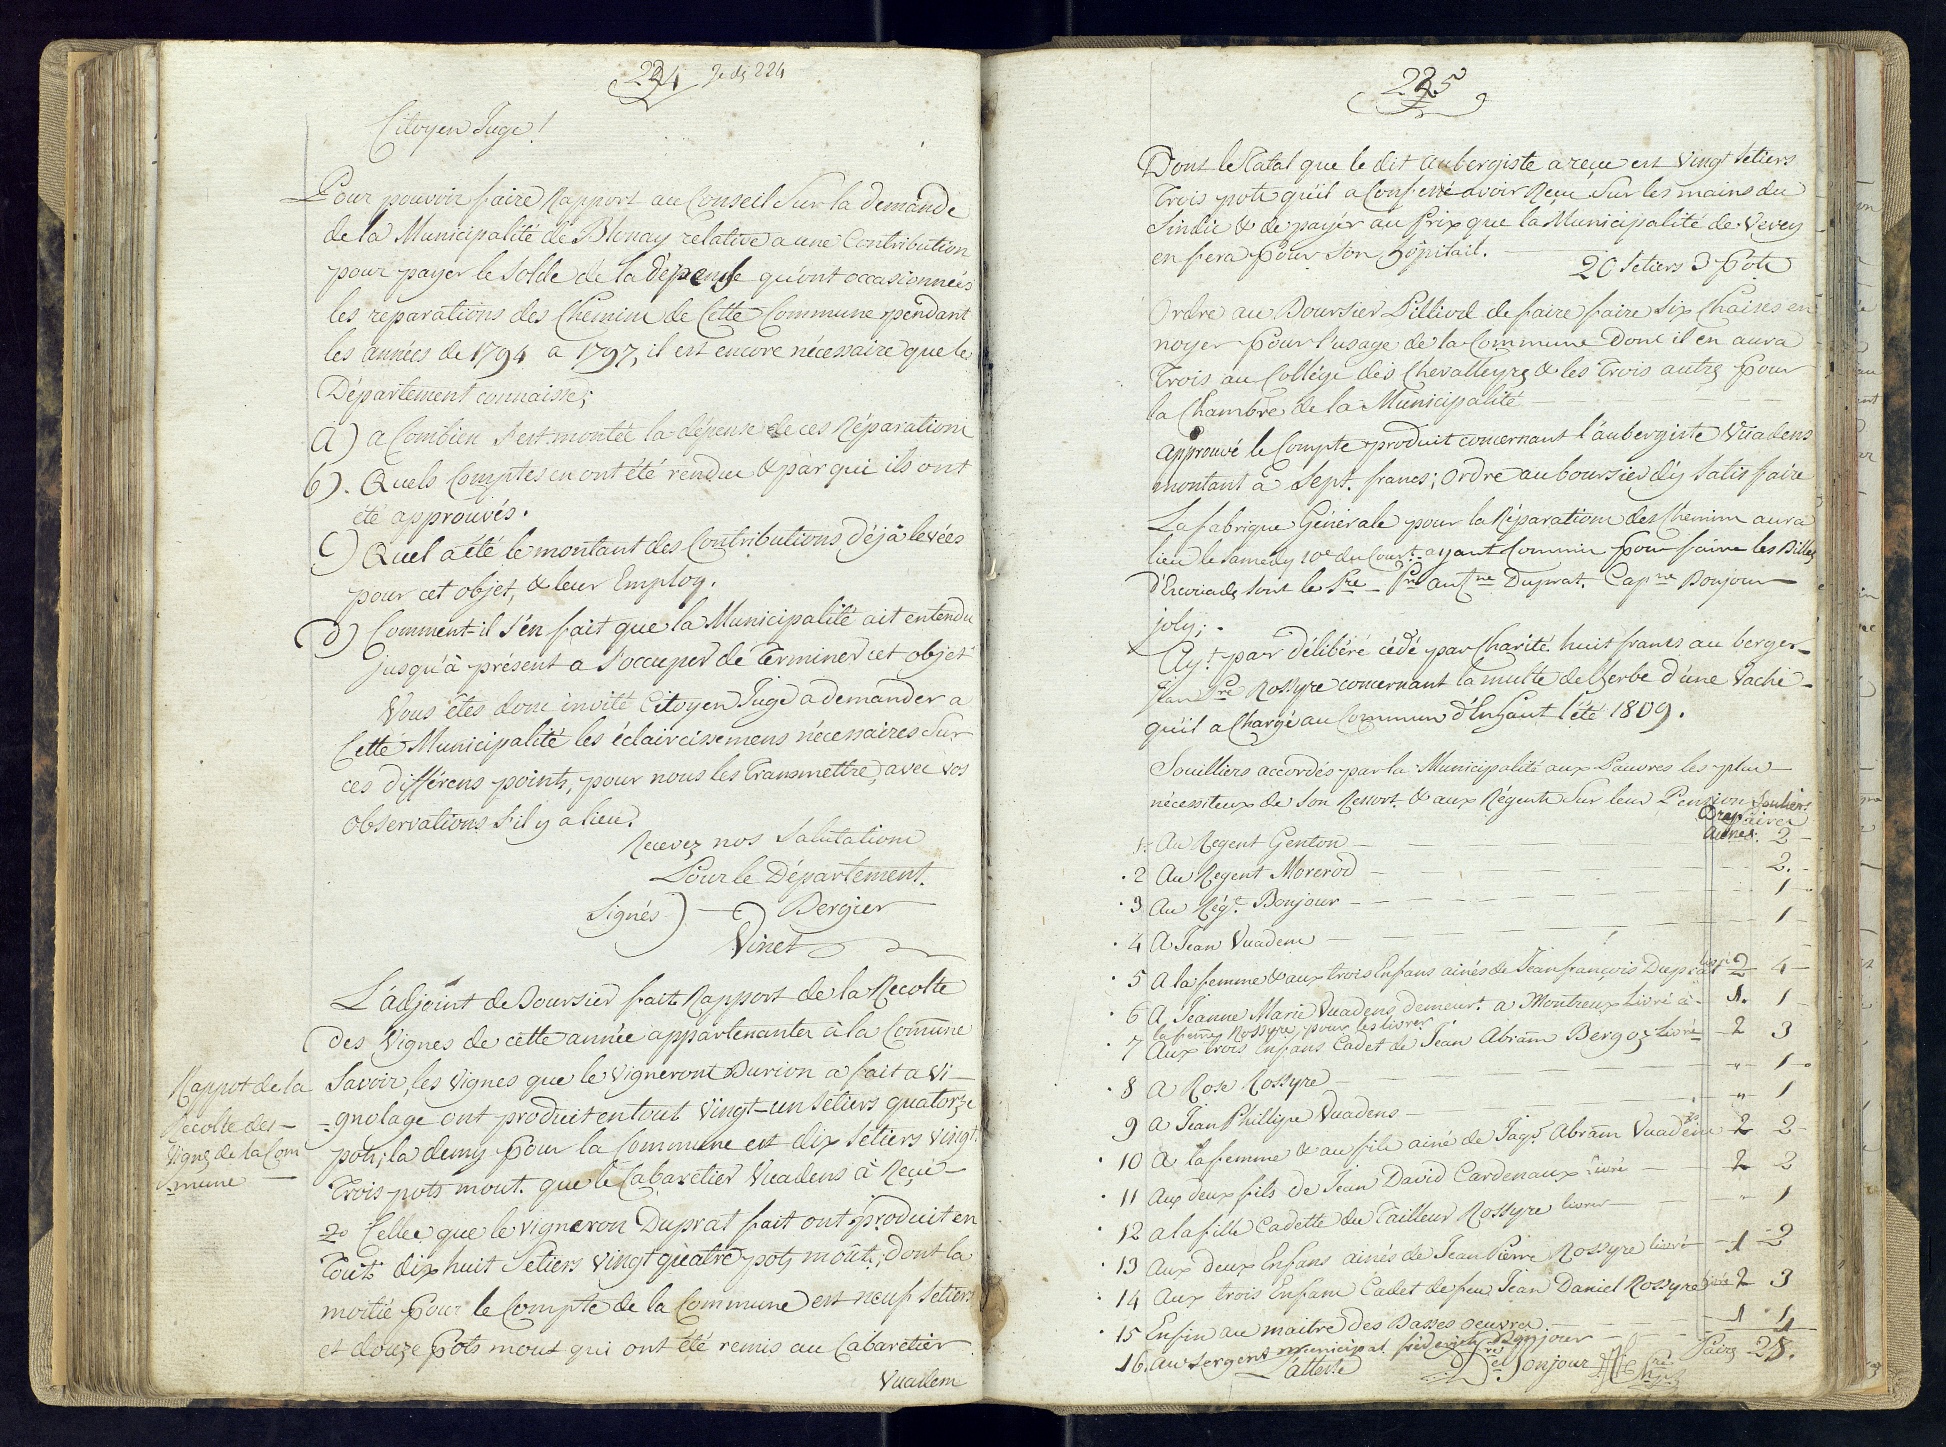 224 Je dis 224
Citoyen Juge !
Pour pouvoir faire Rapport au Conseil Sur la demande
de la Municipalité de Blonay relative a une Contribution
pour payer le Solde de la dépense qu'ont occasionnées
les reparations des Chemins de Cette Commune pendant
les années de 1794 a 1797, il est encore nécessaire que le
Département connaisse;
a) a Combien s'est montée la dépense de ces Réparations
b). Quels Comptes en ont été rendus & par qui ils ont
été approuvés.
c) Quel a été le montant des Contributions déjà levées
pour cet objet, & leur Employ.
d) Comment-il s'en fait que la Municipalité ait entendu
jusqu'à présent a s'occuper de Terminer cet objet
Vous êtes donc invité Citoyen Juge a demander a
Cette Municipalité les éclaircissemens nécessaires Sur
ces différens points, pour nous les Transmettre, avec vos
Observations s'il y a lieu.
Recevez nos Salutations
Pour le Département.
Signés) — Bergier
Vinet
L'adjoint de Boursier fait Rapport de la Recolte
des Vignes de cette année appartenantes à la Comūne
Rappot de la
Recolte des
Vignes de la Com
mune
Savoir, les Vignes que le Vigneront Burion a fait a Vi-
=gnolage ont produit en tout Vingt-un Sétiers quatorze
pots, la demy pour la Commune est dix Sétiers Vingt
Trois pots mout. que le Cabaretier Vuadens à Reçu-
2o Celles que le vigneron Duprat fait ont produit en
Tout dix huit Setiers Vingt quatre pots moût.; dont la
moitié pour le Compte de la Commune est neuf Setiers
et douze Pots mout qui ont été remis au Cabaretier
Vuadens
225
Dont le Total que le dit aubergiste a reçu est Vingt Setiers
Trois pots qu'il a Confessé avoir Reçu Sur les mains du
Sindic & de payér au Prix que la Municipalité de Vevey
en fera Pour Son hôpitail.
20 Setiers 3 Pots
Ordre au Boursier Pilliod de faire faire Six Chaises en
noyer Pour l'usage de la Commune Dont il en aura
Trois au Collége des Chevalleyres & les Trois autres Pour
la Chambre de la Municipalité
Approuvé le Compte produit concernant l'aubergiste Vuadens
montant à Sept. francs; Ordre au boursier d'y Satisfaire
La fabrique Générale pour la Réparation des Chemins aura
lieu le Samedy 10e du Court. ayant Commis Pour faire les Billes
d'Escouades sont le Duprat. Capne Bonjour
joly;
Ayt. par délibéré cédé par Charité huit francs au berger
Jean Pre Rossyre concernant la multe de l'herbe d'une Vache
qu'il a Chargé au Commun d'Enfant l'été 1809.
Souilliers accordés par la Municipalité aux Pauvres les plus
nécessiteux de Son Ressort. & aux Régents Sur leur Pension
Souliers
Drap Paires
Aunes.
1. Au Regent Genton — 2
2 Au Regent Morerod — 2.
3 Au Régt. Bonjour — 1
4 A Jean Vuadens — 1
5 A la femme & aux trois Enfans ainés de Jean françois Duprat 2 4
6 A Jeanne Marie Vuadens demeurt. a Montreux Livré à 1. 1
la femme Rossyre, pour les livrer
7 Aux trois Enfans Cadet de Jean Abram Bergoz Livré 2 3
8 A Rose Rossyre — " 1
9 A Jean Phillipe Vuadens — " 1
10 A la femme & au fils ainé de Jaqs. Abram Vuadens 2 2
11 Aux deux fils de Jean David Cardenaux Livré 2 2
12 a la fille Cadette du Tailleur Rossyre livré " 1
13 Aux deux Enfans ainés de Jean Pierre Rossyre livré 1 2
14 Aux trois Enfans Cadet de feu Jean Daniel Rossyre livré 2 3
15 Enfin au maitre des Basses oeuvres — 1 1
16. au Sergent municipal fréderich Bonjour
Paires 28.
L'atteste
Bonjour